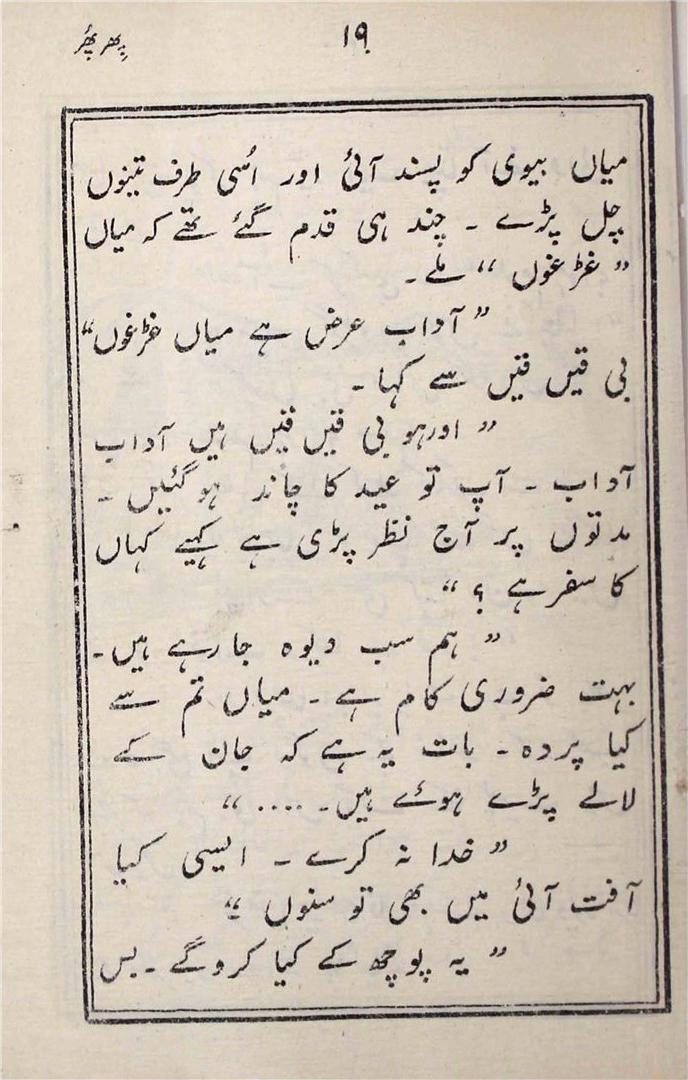 ۱۹ پھر پھُر
میاں بیوی کو پسند آئی اور اُسی طرف تینوں
چل پڑے ۔ چند ہی قدم گئے تھے کہ میاں
” غڑغوں “ ملے ۔
” آداب عرض ہے میاں غڑغوں “
بی قیں قیں سے کہا ۔
” اورہو بی قیں قیں ہیں آداب
آداب ۔ آپ تو عید کا چاند ہو گئیں ۔
مدتوں پر آج نظر پڑی ہے کہیے کہاں
کا سفر ہے ؟ “
” ہم سب دیوہ جا رہے ہیں ۔
بہت ضروری کام ہے ۔ میاں تم سے
کیا پردہ ۔ بات یہ ہے کہ جان کے
لالے پڑے ہوئے ہیں ۔ .... “
” خدا نہ کرے ۔ ایسی کیا
آفت آئی میں بھی تو سنوں “
” یہ پوچھ کے کیا کروگے ۔ بس